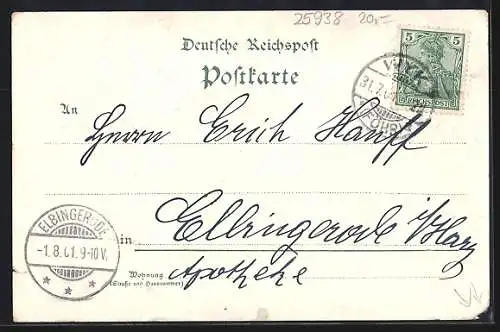 25938 20.-
Deutsche Reichspost
Postkarte
5 5
WYK
31.7.01
FÖHR
An
Herrn Erich Hauff
ELBINGERODE
-1.8.01.9-10V.
in Elbingerode i/Harz
Wohnung
(Straße und Hausnummer)
Apotheke